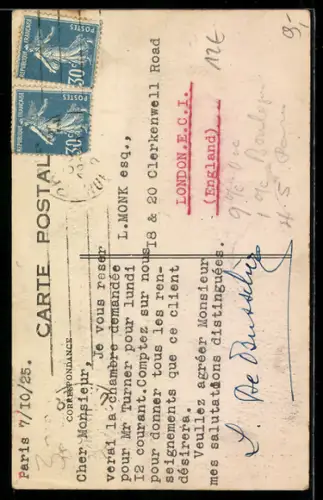 POSTES
30c
REPUBLIQUE FRANCAISE
POSTES
30c
REPUBLIQUE FRANCAISE
CARTE POSTALE
CORRESPONDANCE
Paris 7/10/25.
Cher Monsieur,
Je vous reser
verai la chambre demandée
pour Mr Turner pour lundi
I2 courant.Comptez sur nous
pour donner tous les ren-
seignements que ce client
désirera.
Veullez agréer Monsieur
mes salutations distinguées.
L. MONK esq.,
I8 & 20 Clerkenwell Road
LONDON.E.C.I.
(England)
12€
9,-